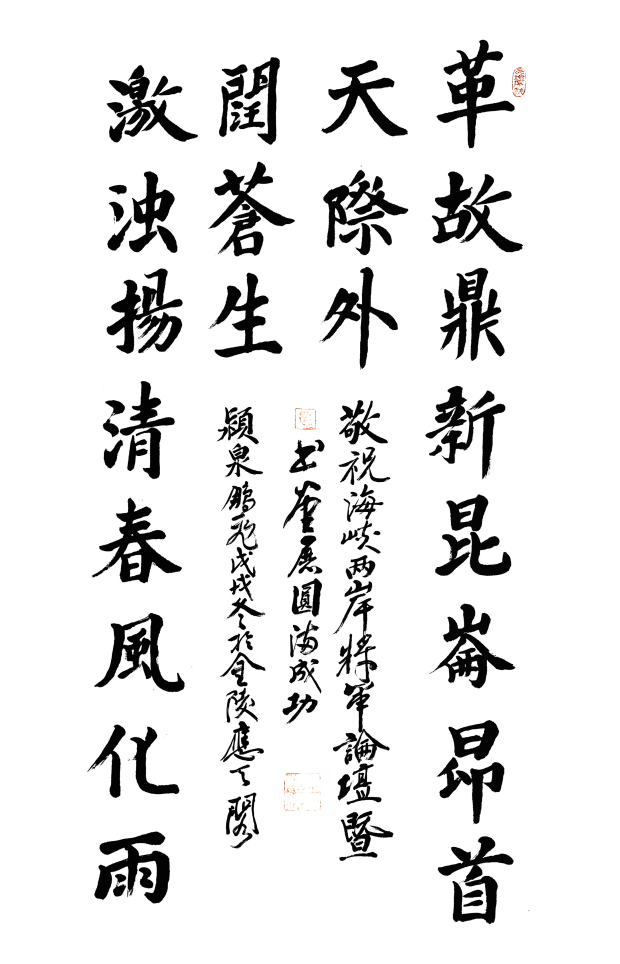 革故鼎新昆崙昂首
天際外
激浊揚清春風化雨
閏蒼生
敬祝海峡两岸将軍論壇暨
书画展圓满成功
穎泉鵬飛戊戌冬於金陵應天閣